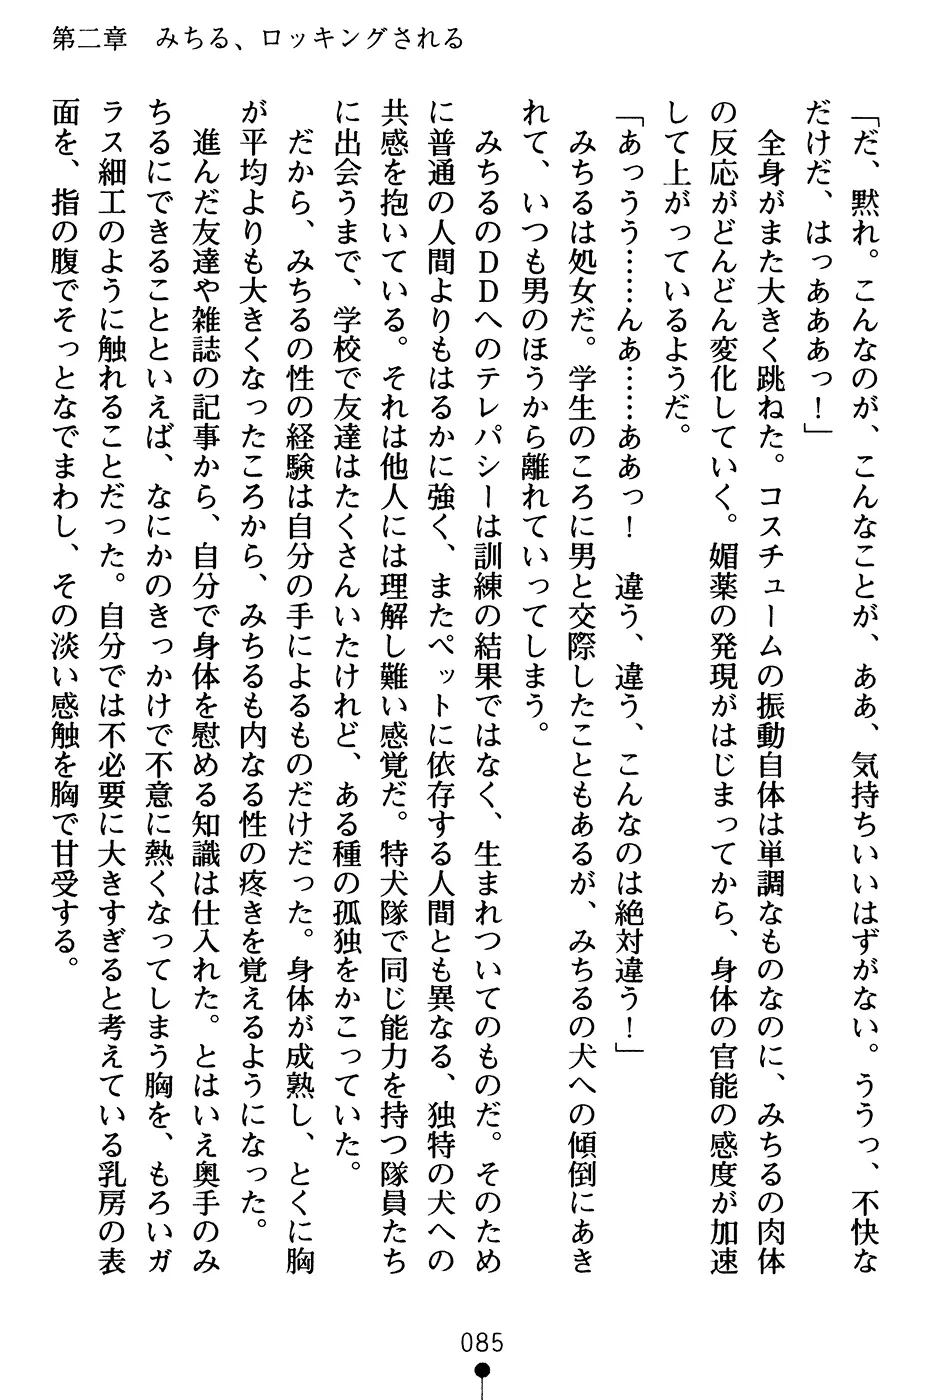 第二章　みちる、ロッキングされる
「だ、黙れ。こんなのが、こんなことが、ああ、気持ちいいはずがない。ううっ、不快な
だけだ、はっあああっ！」
　全身がまた大きく跳ねた。コスチュームの振動自体は単調なものなのに、みちるの肉体
の反応がどんどん変化していく。媚薬の発現がはじまってから、身体の官能の感度が加速
して上がっているようだ。
「あっうう……んあ……ああっ！　違う、違う、こんなのは絶対違う！」
　みちるは処女だ。学生のころに男と交際したこともあるが、みちるの犬への傾倒にあき
れて、いつも男のほうから離れていってしまう。
　みちるのＤＤへのテレパシーは訓練の結果ではなく、生まれついてのものだ。そのため
に普通の人間よりもはるかに強く、またペットに依存する人間とも異なる、独特の犬への
共感を抱いている。それは他人には理解し難い感覚だ。特犬隊で同じ能力を持つ隊員たち
に出会うまで、学校で友達はたくさんいたけれど、ある種の孤独をかこっていた。
　だから、みちるの性の経験は自分の手によるものだけだった。身体が成熟し、とくに胸
が平均よりも大きくなったころから、みちるも内なる性の疼きを覚えるようになった。
　進んだ友達や雑誌の記事から、自分で身体を慰める知識は仕入れた。とはいえ奥手のみ
ちるにできることといえば、なにかのきっかけで不意に熱くなってしまう胸を、もろいガ
ラス細工のように触れることだった。自分では不必要に大きすぎると考えている乳房の表
面を、指の腹でそっとなでまわし、その淡い感触を胸で甘受する。
085